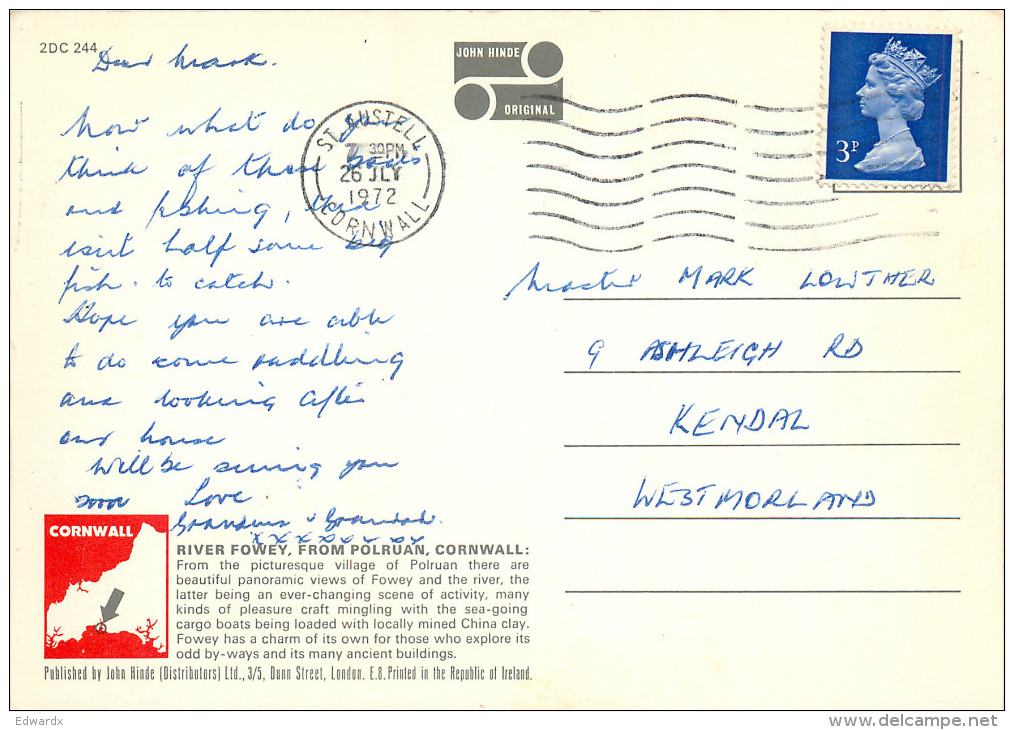 2DC 244
Dear Mark.
Now what do you
think of these boats
and fishing, there
isn't half some big
fish. to catch.
Hope you are able
to do some paddling
and looking after
our house
Will be seeing you
soon Love
Grandma & Grandad.
xxxxxxx
JOHN HINDE
ORIGINAL
ST. AUSTELL
7 30PM
26 JLY
1972
CORNWALL
3P
Master MARK LOWTHER
9 ASHLEIGH RD
KENDAL
WESTMORLAND
CORNWALL
RIVER FOWEY, FROM POLRUAN, CORNWALL:
From the picturesque village of Polruan there are
beautiful panoramic views of Fowey and the river, the
latter being an ever-changing scene of activity, many
kinds of pleasure craft mingling with the sea-going
cargo boats being loaded with locally mined China clay.
Fowey has a charm of its own for those who explore its
odd by-ways and its many ancient buildings.
Published by John Hinde (Distributors) Ltd., 3/5, Dunn Street, London. E.8. Printed in the Republic of Ireland.
Edwardx
delcampe.net